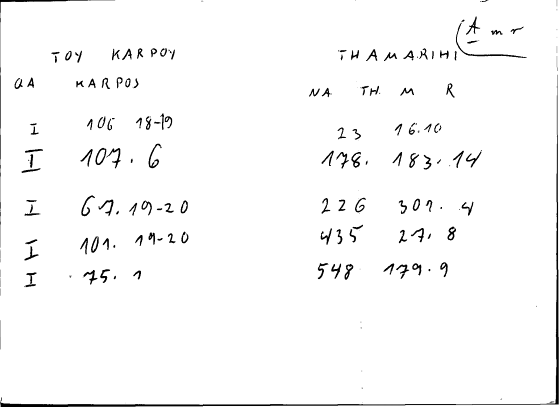 A m r
TOY KARPOY THAMARIHI
QA KARPOS NA TH M R
I 106 18-19 23 16.10
I 107.6 178. 183.14
I 67.19-20 226 301.4
I 101.19-20 435 27.8
I 75.1 548 179.9